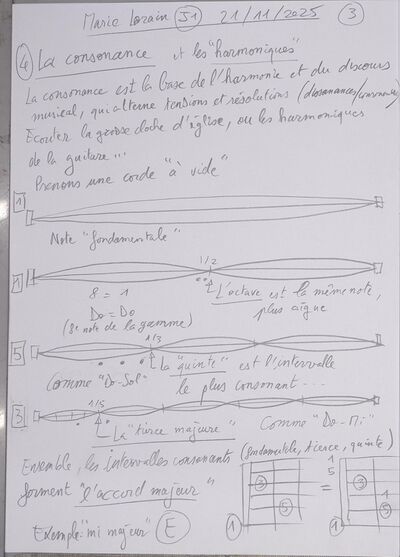 Marie Lorain J1 21/11/2025 3
4 La consonance et les "harmoniques"
La consonance est la base de l'harmonie et du discours
musical, qui alterne tensions et résolutions (dissonances/consonances)
Écouter la grosse cloche d'église, ou les harmoniques
de la guitare...
Prenons une corde "à vide"
1
Note "fondamentale"
1 1/2
8 = 1
L'octave est la même note,
Do = Do
plus aigüe
(8e note de la gamme)
1/3
5
La "quinte" est l'intervalle
Comme "Do-Sol"
le plus consonant...
3 1/5
La "tierce majeure" Comme "Do-Mi"
Ensemble, les intervalles consonants (fondamentale, tierce, quinte)
forment "l'accord majeur"
3 5 1 = 1 5 3 1 5 1
Exemple: "mi majeur" E